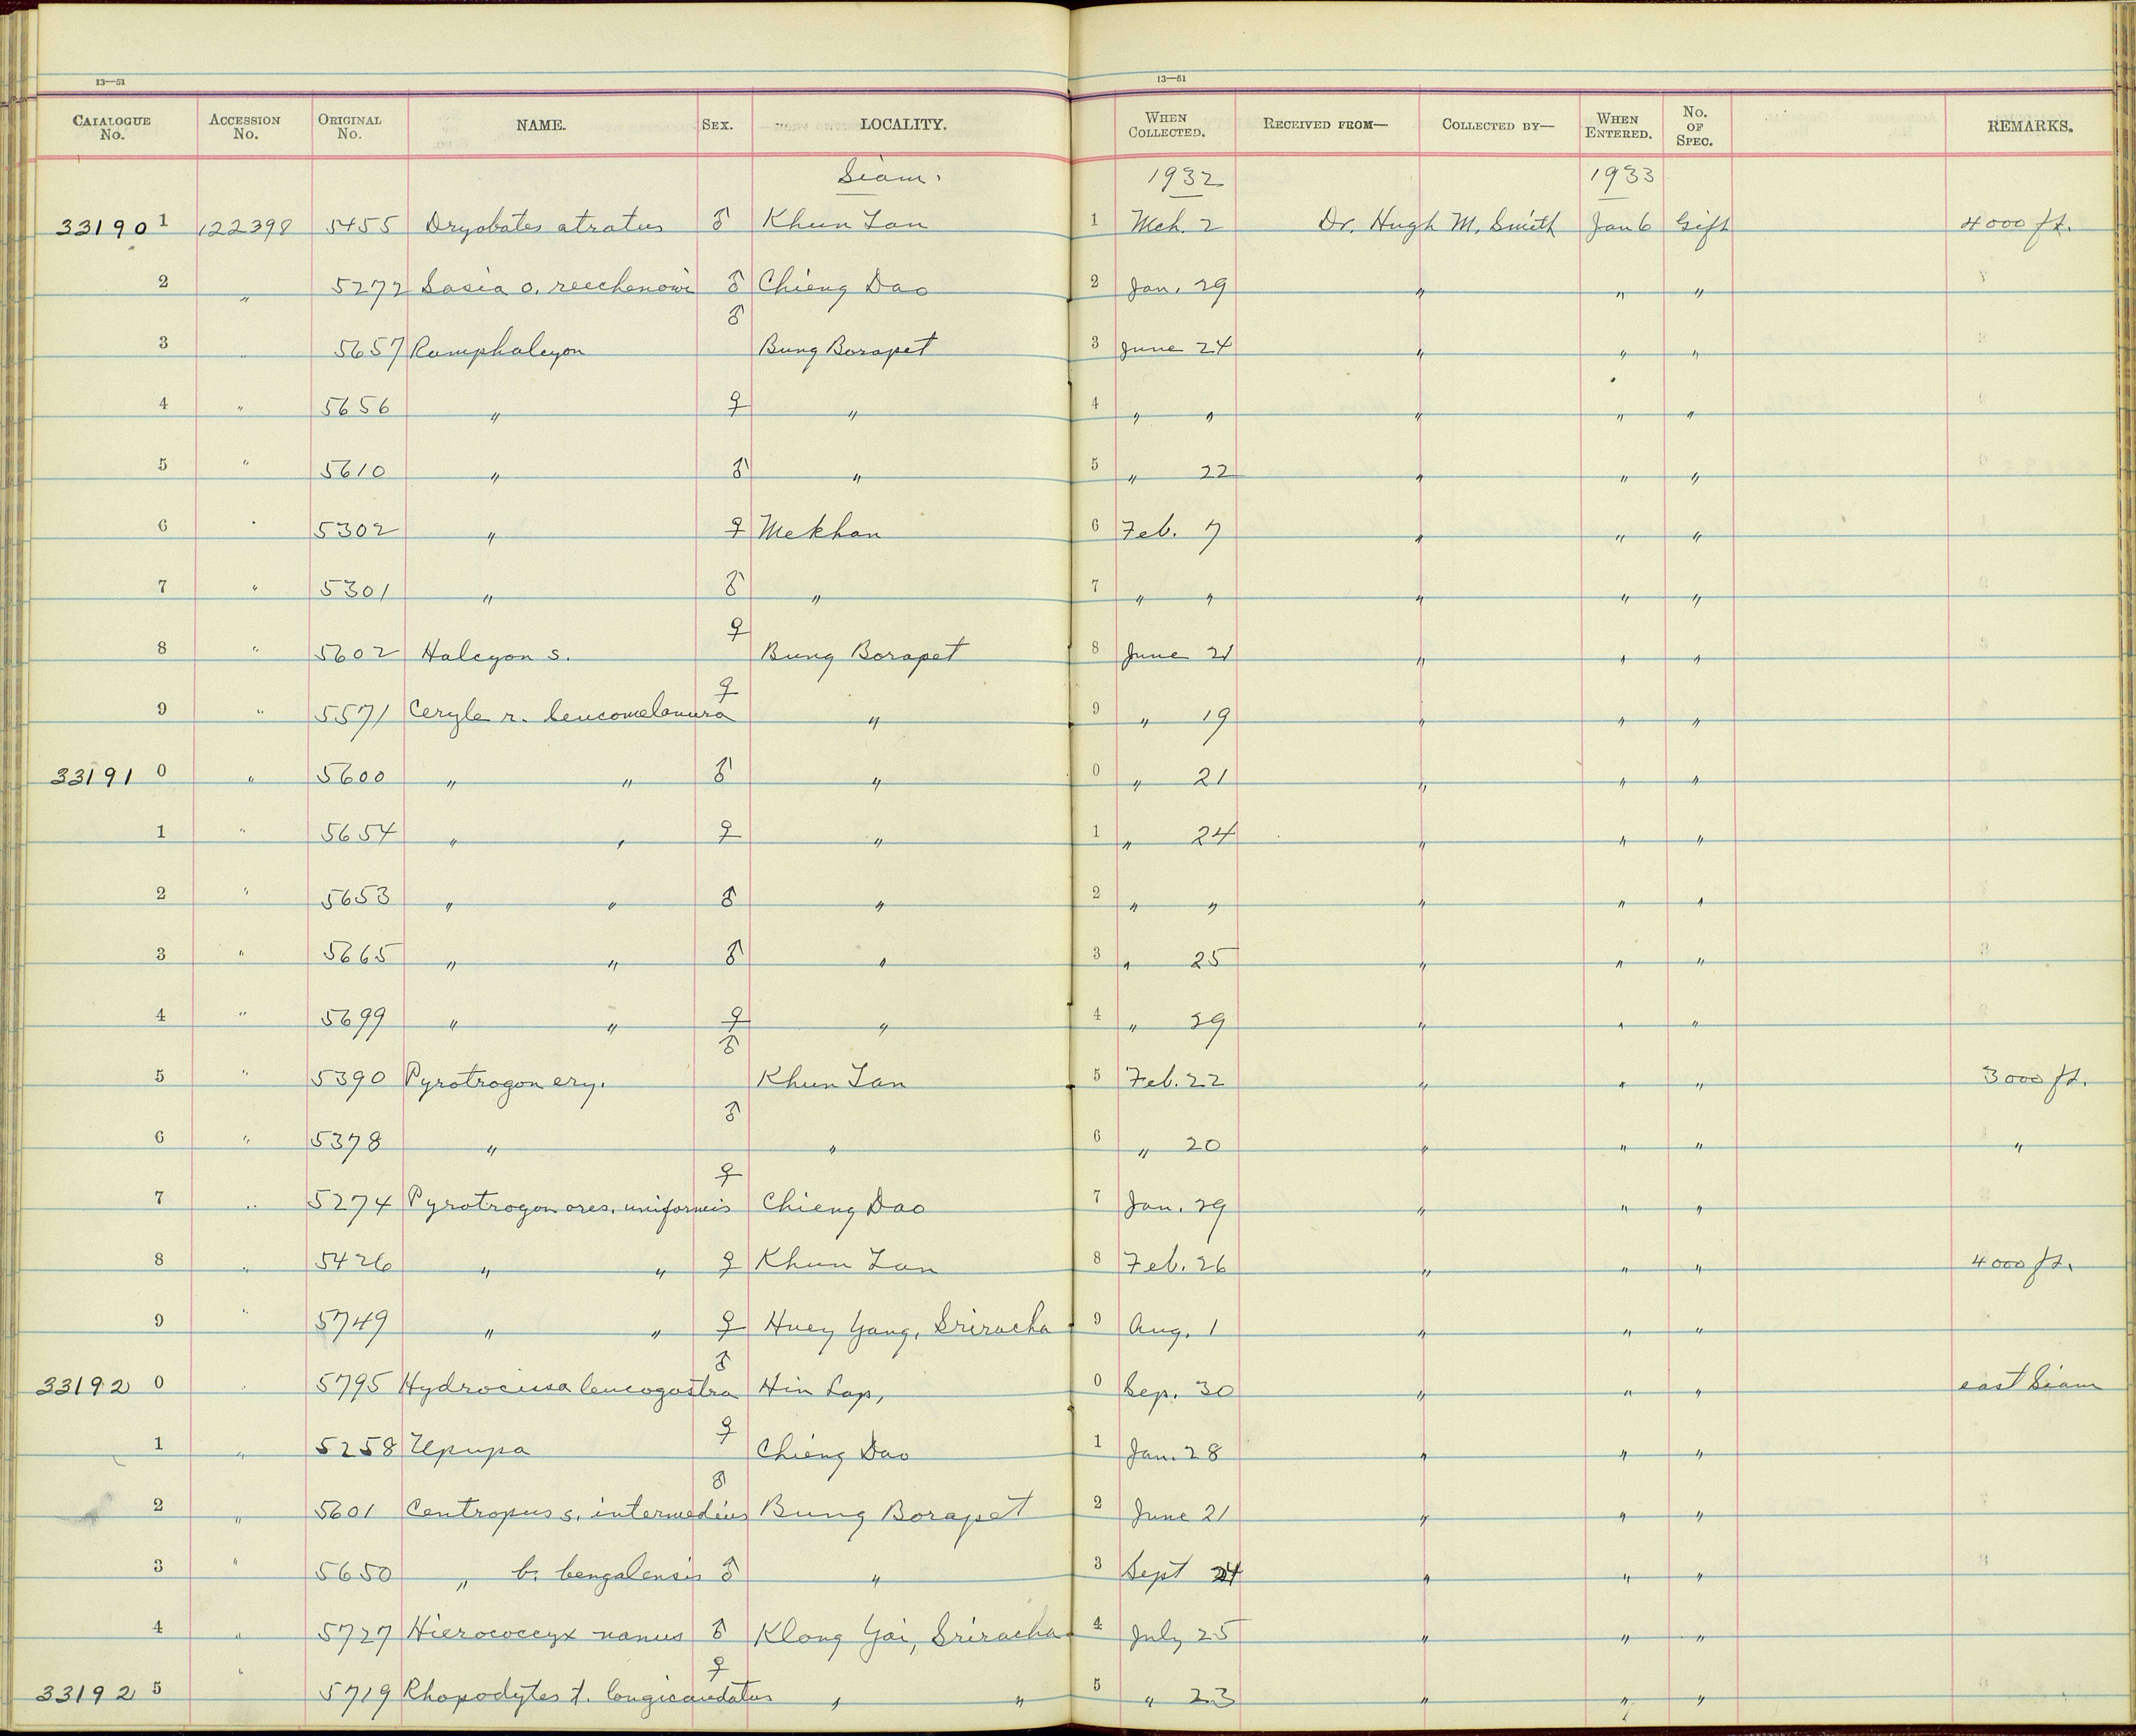 13—51 13—51
CATALOGUE No. ACCESSION No. ORIGINAL No. NAME. SEX. LOCALITY. WHEN COLLECTED. RECEIVED FROM— COLLECTED BY— WHEN ENTERED. No. OF SPEC. REMARKS.
Siam. 1932 1933
33190 1 122398 5455 Dryobates atratus ♂ Khun Tan 1 Mch. 2 Dr. Hugh M. Smith Jan 6 Gift 4000 ft.
2 " 5272 Sasia o. reechenowi ♂ Chieng Dao 2 Jan. 29 " " "
3 " 5657 Ramphalcyon ♂ Bung Borapet 3 June 24 " " "
4 " 5656 " ♀ " 4 " " " " "
5 " 5610 " ♂ " 5 " 22 " " "
6 " 5302 " ♀ Mekhan 6 Feb. 7 " " "
7 " 5301 " ♂ " 7 " " " " "
8 " 5602 Halcyon s. ♀ Bung Borapet 8 June 21 " " "
9 " 5571 Ceryle r. leucomelanura ♀ " 9 " 19 " " "
33191 0 " 5600 " " ♂ " 0 " 21 " " "
1 " 5654 " " ♀ " 1 " 24 " " "
2 " 5653 " " ♂ " 2 " " " " "
3 " 5665 " " ♂ " 3 " 25 " " "
4 " 5699 " " ♀ " 4 " 29 " " "
5 " 5390 Pyrotrogon ery. ♂ Khun Tan 5 Feb. 22 " " " 3000 ft.
6 " 5378 " ♂ " 6 " 20 " " " "
7 " 5274 Pyrotrogon ores. uniformis ♀ Chieng Dao 7 Jan. 29 " " "
8 " 5426 " " ♀ Khun Tan 8 Feb. 26 " " " 4000 ft.
9 " 5749 " " ♀ Huey Yang, Sriracha 9 Aug. 1 " " "
33192 0 " 5795 Hydrocissa leucogastra ♂ Hin Lap, 0 Sep. 30 " " " east Siam
1 " 5258 Upupa ♀ Chieng Dao 1 Jan. 28 " " "
2 " 5601 Centropus s. intermedius ♂ Bung Borapet 2 June 21 " " "
3 " 5650 " b. bengalensis ♂ " 3 Sept 24 " " "
4 " 5727 Hierococcyx nanus ♂ Klong Yai, Sriracha 4 July 25 " " "
33192 5 " 5719 Rhopodytes t. longicaudatus ♀ " " 5 " 23 " " "